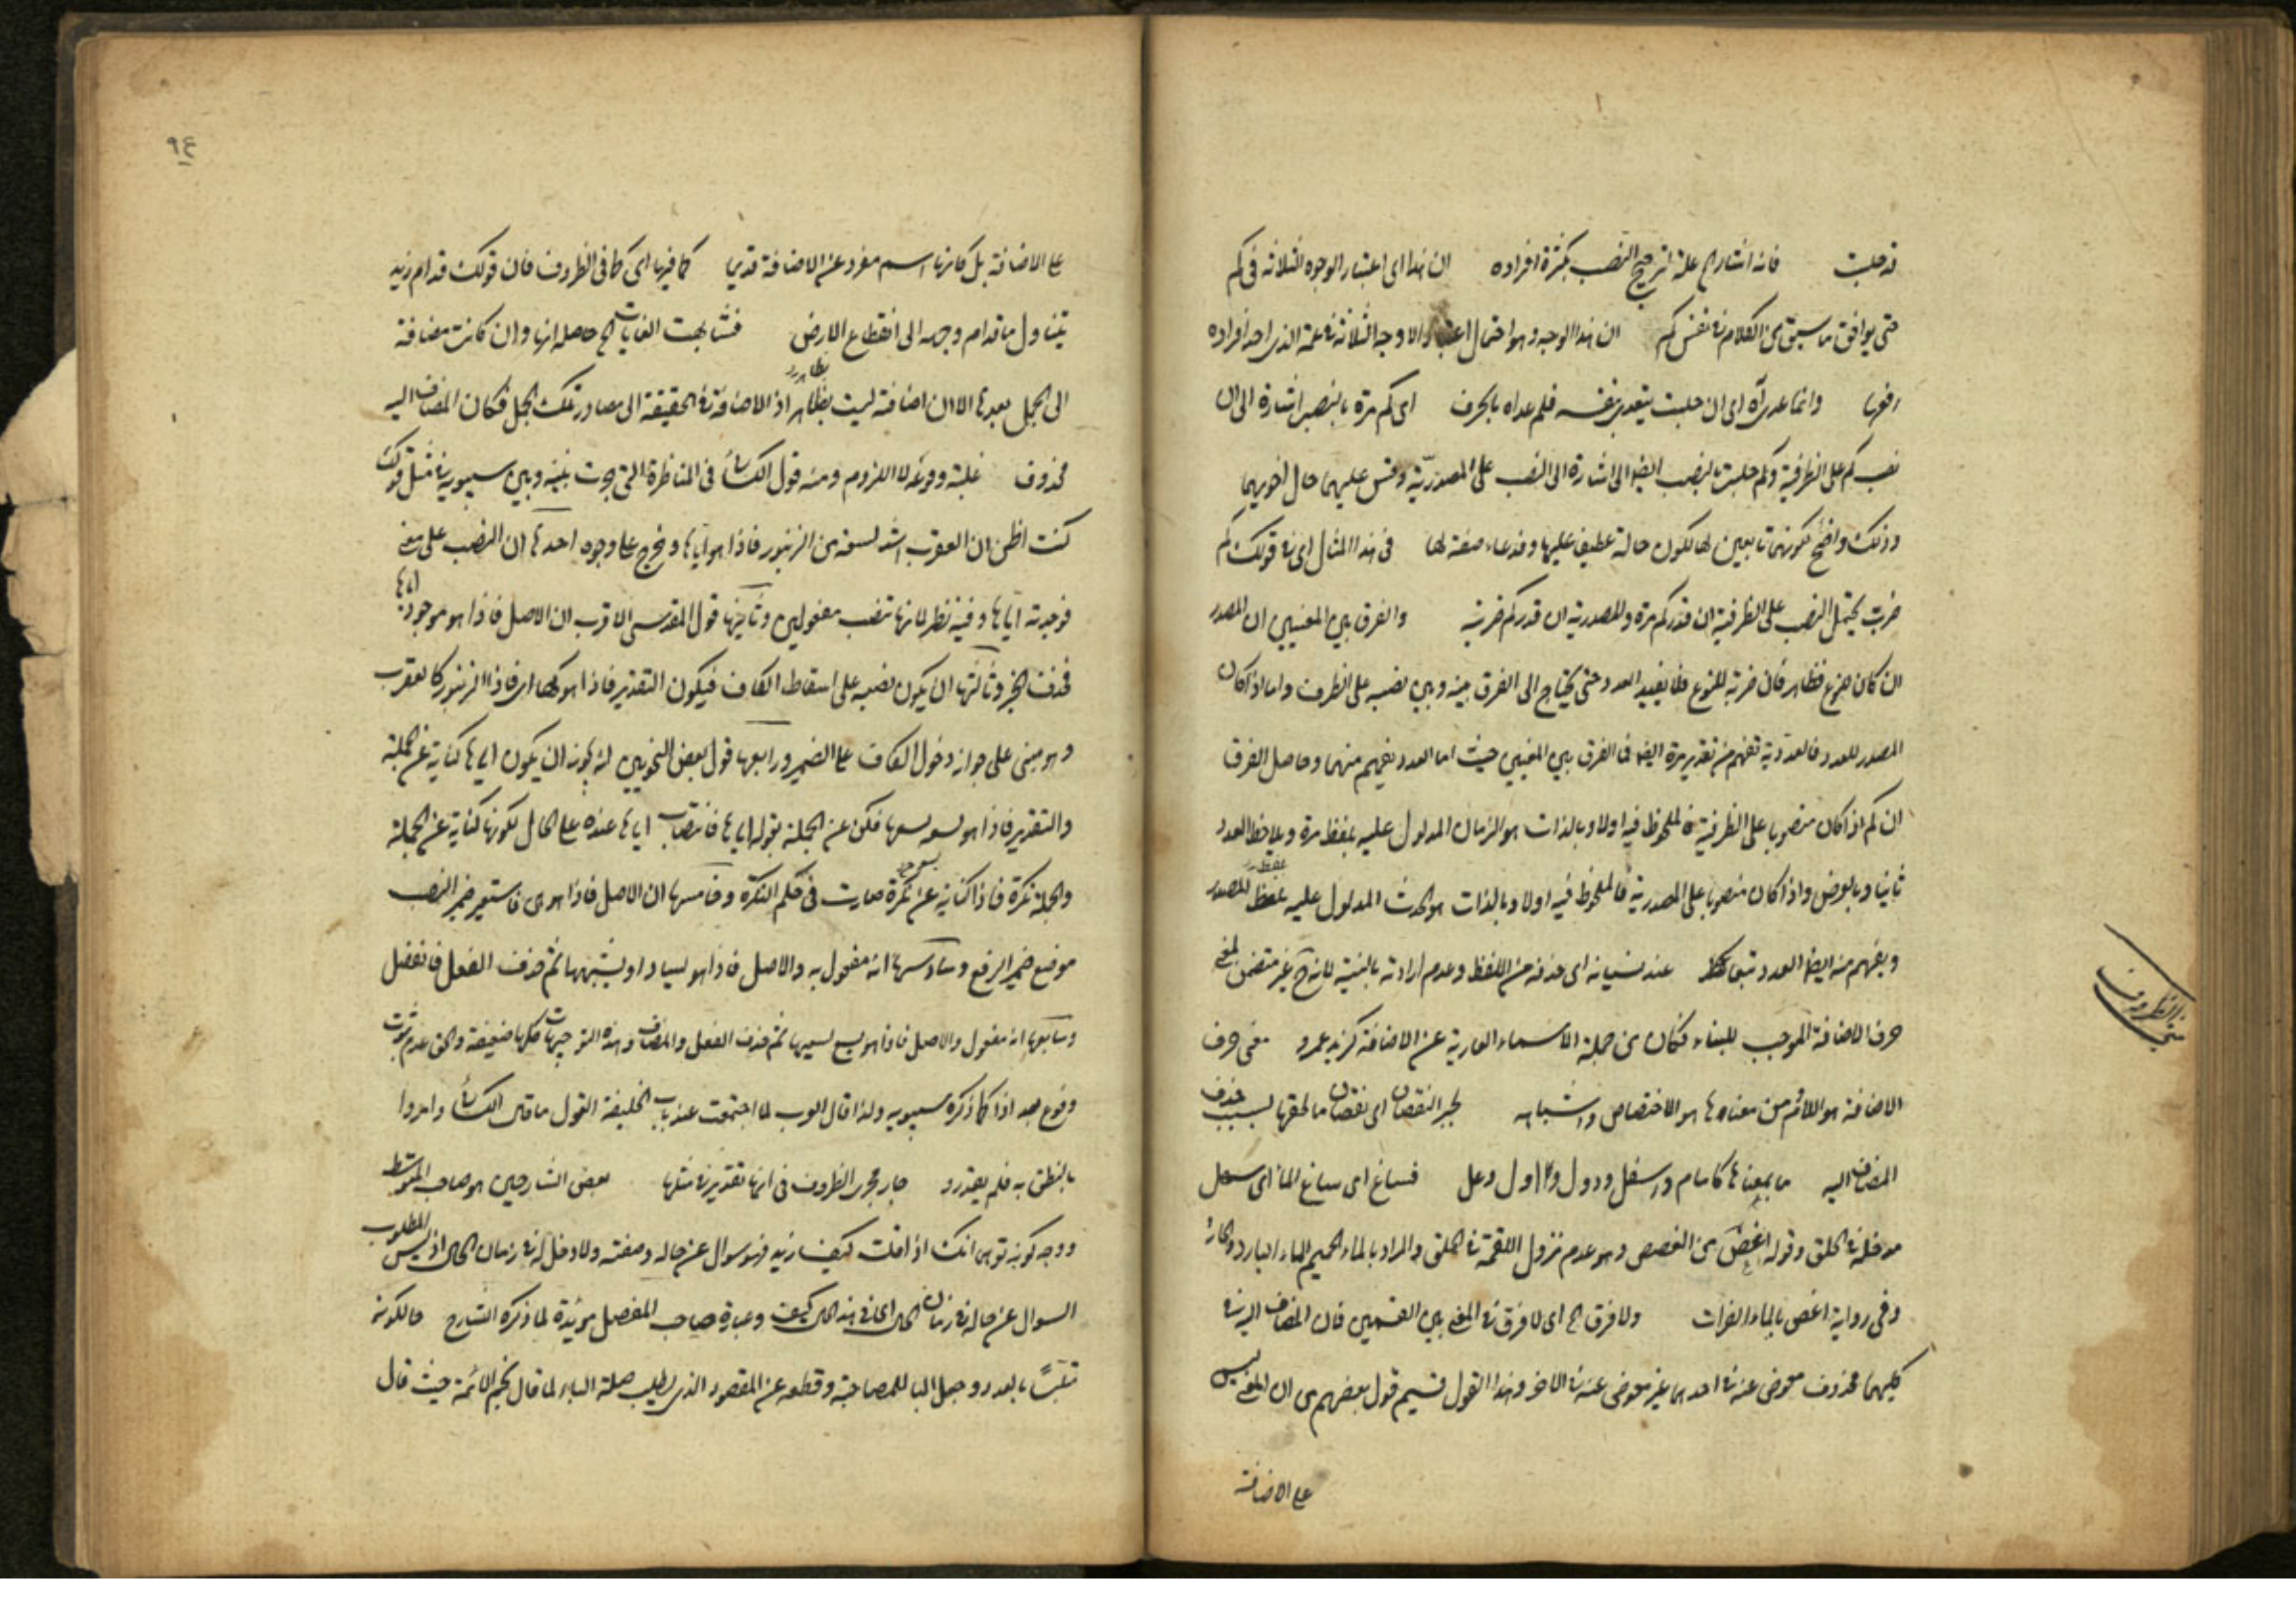 قد حلبت فانه اشار الى علة ترجيح النصب بكثرة افراده ان هذا اى اعتبار الوجوه الثلاثة فى كم
حتى يوافق ما سبق من الكلام فى نفس كم ان هذا الوجه وهو احتمال اعتبار الاوجه الثلاثة فى عمة الذى احد افراده
رفعها وانما عداه اى ان حلبت يتعدى بنفسه فلم عداه بالحرف اى كم مرة بالنصب اشارة الى ان
نصب كم على الظرفية وكم حلبة بالنصب ايضا اشارة الى النصب على المصدرية وقس عليهما حال اخويهما
وذلك واضح لكونهما تابعين لها لكون خالة عطيف عليها وفدعاء صفة لها فى هذا المثال اى فى قولك كم
ضربت يحتمل النصب على الظرفية ان قدر كم مرة والمصدرية ان قدر كم ضربة والفرق بين المعنيين ان المصدر
ان كان للنوع فظاهر فان ضربة للنوع فلا يفيد العدد حتى يحتاج الى الفرق بينه وبين نصبه على الظرف واما اذا كان
المصدر للعدد فالعددية تفهم من تقدير مرة ايضا فما الفرق بين المعنيين حيث اما العدد يفهم منهما وحاصل الفرق
ان كم اذا كان منصوبا على الظرفية فالملحوظ فيه اولا وبالذات هو الزمان المدلول عليه بلفظ مرة ويلاحظ العدد
ثانيا وبالعرض واذا كان منصوبا على المصدرية فالملحوظ فيه اولا وبالذات هو الحدث المدلول عليه بلفظ المصدر
ويفهم منه ايضا العدد تبعا عند نسيانه اى حذفه من اللفظ وعدم ارادته بالنية لانه ح غير متضمن لمعنى
حرف الاضافة الموجب للبناء فكان من جملة الاسماء العارية عن الاضافة كزيد وعمرو معنى حرف
الاضافة هو اللام ومن معناها هو الاختصاص واشباهه لجبر النقصان اى نقصان ما لحقها بسبب حذف
المضاف اليه ما بمعناها كامام واسفل ودون واول وعل فساغ اى ساغ الماء اى سهل
مدخله فى الحلق وقوله اغص من الغصص وهو عدم نزول اللقمة فى الحلق والمراد بالماء الحميم الماء البارد والحار
وفى رواية اغص بالماء الفرات ولا فرق الخ اى لا فرق فى المعنى بين القسمين فان المضاف اليه فى
كليهما محذوف معوض عنه فى احدهما غير معوض عنه فى الاخر وهذا القول قسيم قول بعضهم من ان المعنى ليس
على الاضافة
الظروف
مبنى
٩٤
على الاضافة بل كانها اسم مفرد عن الاضافة قديما كما فيها اى كما فى الظروف فان قولك قدام زيد
يتناول ما قدام وجهه الى انقطاع الارض فشابهت الغايات الخ حاصله انها وان كانت مضافة
الى الجمل بعدها الا ان اضافته ليست بظاهر اذ الاضافة فى الحقيقة الى مصادر تلك الجمل فكان المضاف اليه
محذوف غلبة وقوعه لا اللزوم ومنه قول الكسائى فى المناظرة التى جرت بينه وبين سيبويه فى مثل قولك
كنت اظن ان العقرب اشد لسعة من الزنبور فاذا هو اياها وخرج على وجوه احدها ان النصب على معنى
فوجدته اياها وفيه نظر لانها تنصب مفعولين وثانيها قول المقدسى الاقرب ان الاصل فاذا هو موجود اياها
فحذف الخبر وثالثها ان يكون نصبه على اسقاط الكاف فيكون التقدير فاذا هو كها اى فاذا الزنبور كالعقرب
وهو مبنى على جواز دخول الكاف على الضمير ورابعها قول بعض النحويين انه يجوز ان يكون اياها كناية عن الجملة
والتقدير فاذا هو لسعه لسعها فكنى عن الجملة بقوله اياها فانتصاب اياها عنده على الحال لكونها كناية عن الجملة
والجملة نكرة فاذا كناية عن نكرة صارت فى حكم النكرة وخامسها ان الاصل فاذا هو هى فاستعير ضمير النصب
موضع ضمير الرفع وسادسها انه مفعول به والاصل فاذا هو يساويها او يشبهها ثم حذف الفعل فانفصل
وسابعها انه مفعول والاصل فاذا هو يلسع لسعها ثم حذف الفعل والمضاف وهذه التوجيهات كلها ضعيفة والحق عدم ثبوت
وقوع بعد اذا كما ذكره سيبويه ولذا قال العرب لما اجتمعت عند باب الخليفة القول ما قال الكسائى وامروا
بالنطق به فلم يقدروا جار مجرى الظروف فى انها تقدير فى مثلها بعض الشارحين هو صاحب المتوسط
ووجه كونه توهما انك اذا قلت كيف زيد فهو سوال عن حاله وصفته ولا دخل له فى زمان الحال اذ ليس المطلوب
السوال عن حاله فى زمان الحال اى فى هذه الحال كيف وعبارة صاحب المفصل مؤيدة لما ذكره الشارح حال كونه
تلبسا بالعدد وجعل الباء للمصاحبة وقطعه عن المقصود الذى يطلب صلة الباء لما قال نجم الائمة حيث قال